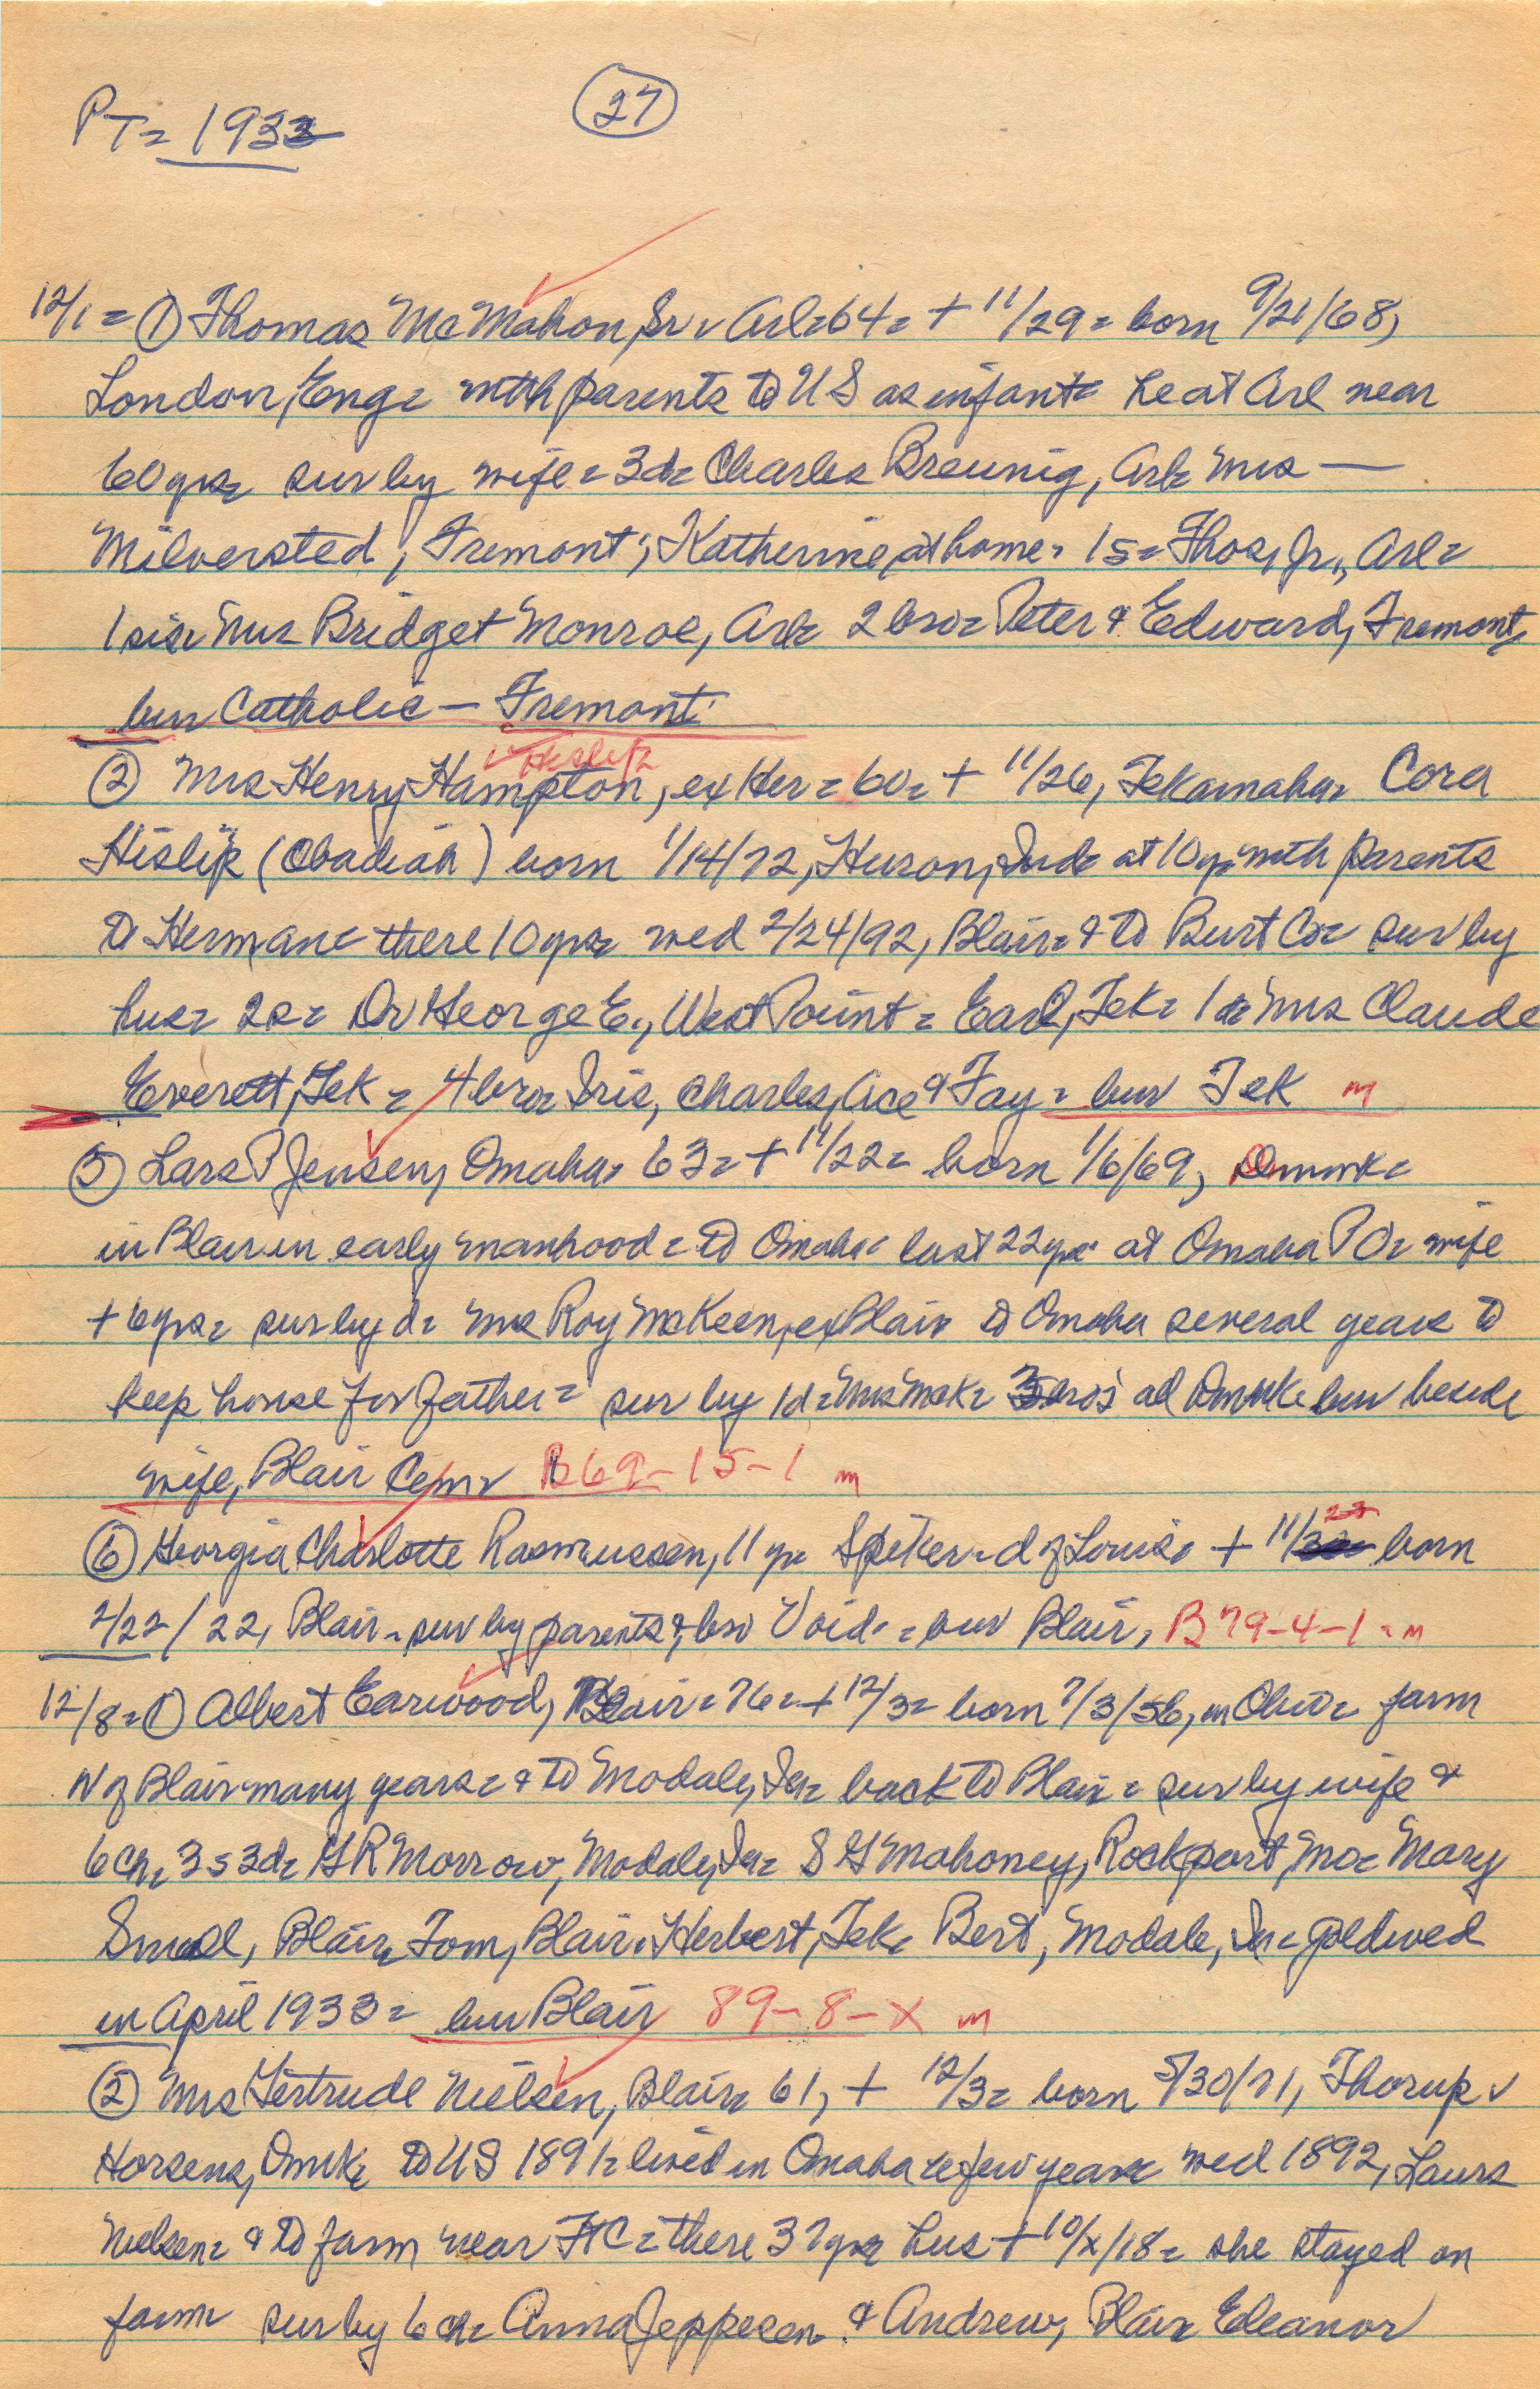 27
PT= 1933
12/1= ① Thomas McMahon, Sr= Arl=64= + 11/29= born 9/21/68,
London, Eng= with parents to US as infant= he at Arl near
60yrs= sur by wife= 3d= Charles Breunig, Arl= Mrs —
Milversted, Fremont; Katherine, at home= 1s= Thos, Jr., Arl=
1sis= Mrs Bridget Monroe, Arl= 2bro= Peter & Edward, Fremont,
bur Catholic — Fremont
Heslip
② Mrs Henry Hampton, ex Her= 60= + 11/26, Tekamaha= Cora
Hislip (Obadiah) born 1/14/72, Huron, Ind= at 10yr with parents
to Herman= there 10yrs= wed 2/24/92, Blair= & to Burt Co= sur by
hus= 2s= Dr George E., West Point= Earl, Tek= 1d= Mrs Claude
Everett, Tek= 4bro= Iris, Charles, Ace & Fay= bur Tek m
⑤ Lars P Jensen, Omaha= 63= + 11/22= born 1/6/69, Dnmrk=
in Blair in early manhood= to Omaha= last 22yrs at Omaha PO= wife
+ 6yrs= sur by d= Mrs Roy McKeen, ex Blair to Omaha several years to
keep house for father= sur by 1d= Mrs McK= 3bros all Dnmk= bur beside
wife, Blair Cem= B69-15-1 m
23
⑥ Georgia Charlotte Rasmussen, 11yr= Spiker= d of Louis= + 11/ born
2/22/22, Blair= sur by parents & bro Void= bur Blair, B79-4-1= m
12/8= ① Albert Earwood, Blair= 76= + 12/3= born 7/3/56, in Ohio= farm
N of Blair many years= & to Modale, Ia= back to Blair= sur by wife &
6ch= 3s 3d= GR Morrow, Modale, Ia= S G Mahoney, Rockport, Mo= Mary
Small, Blair= Tom, Blair= Herbert, Tek= Bert, Modale, Ia= gold wed
in April 1933= bur Blair 89-8-X m
② Mrs Gertrude Nielsen, Blair= 61, + 12/3= born 5/30/71, Thorup
Horsens, Dnmk= to US 1891= lived in Omaha a few years= wed 1892, Laurs
Nielsen= & to farm near FtC= there 37yrs= hus + 10/x/18= she stayed on
farm= sur by 6ch= Anna Jeppesen & Andrew, Blair= Eleanor